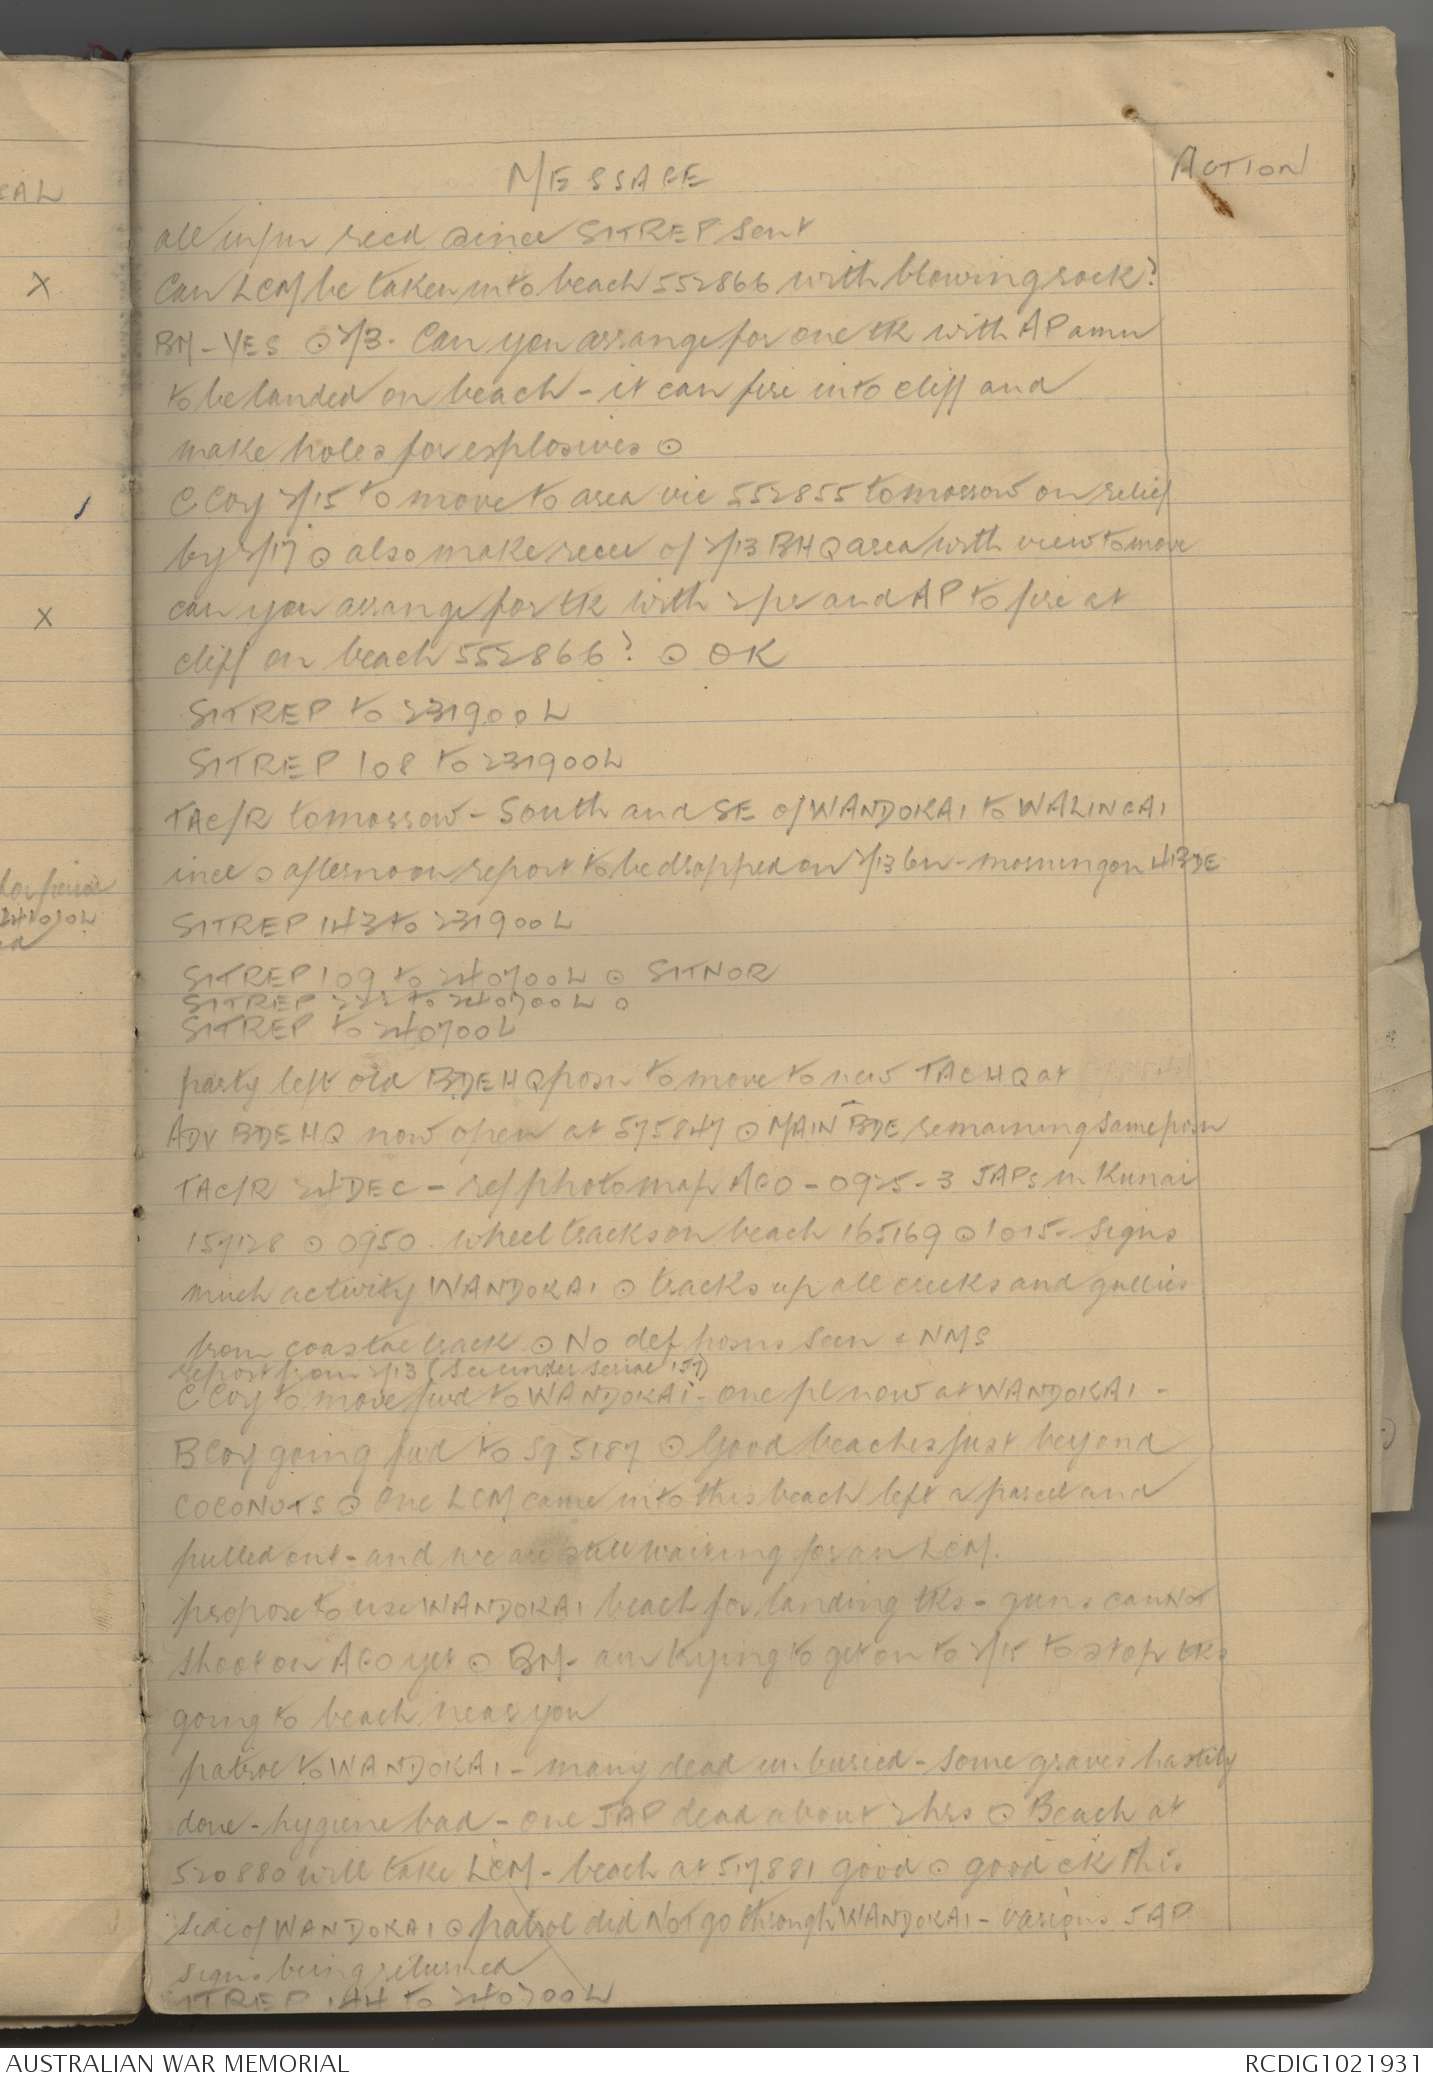 MESSAGE
ACTION
CAL
all infm recd since SITREP sent
X
Can LCM be taken into beach 552866 with blowing rock?
BM - YES ⊙ 2/3. Can you arrange for one tk with AP amn
to be landed on beach - it can fire into cliff and
make holes for explosives ⊙
C Coy 2/15 to move to area vic 552855 tomorrow on relief
by 2/17 ⊙ also make recce of 2/13 BHQ area with view to move
X
can you arrange for tk with 2 prs and AP to fire at
cliff on beach 552866? ⊙ OK
SITREP to 231900L
SITREP 108 to 231900L
TAC/R tomorrow - South and SE of WANDOKAI to WALINGAI
incl ⊙ afternoon report to be dropped on 2/13 bn - morning on 4 BDE
241030L
SITREP 143 to 231900L
SITREP 109 to 240700L ⊙ SITNOR
SITREP 222 to 240700L ⊙
SITREP to 240700L
party left old BDE HQ posn to move to new TAC HQ at
ADV BDE HQ now open at 575847 ⊙ MAIN BDE remaining same posn
TAC/R 24 DEC - ref photo map AGO - 0925 - 3 JAPs in Kunai
157128 ⊙ 0950 wheel tracks on beach 165169 ⊙ 1015 - signs
much activity WANDOKAI ⊙ tracks up all creeks and gullies
from coastal track ⊙ No def posns seen & NMS
report from 2/13 (see under serial 157)
C Coy to move fwd to WANDOKAI - one pl now at WANDOKAI -
B Coy going fwd to 595187 ⊙ Good beaches just beyond
COCONUTS ⊙ One LCM came into this beach left a parcel and
pulled out - and we are still waiting for an LCM.
propose to use WANDOKAI beach for landing tks - guns cannot
shoot on AGO yet ⊙ BM - am trying to get on to 2/15 to stop tks
going to beach near you
patrol to WANDOKAI - many dead unburied - some graves hastily
done - hygiene bad - one JAP dead about 2 hrs ⊙ Beach at
520880 will take LCM - beach at 517881 good ⊙ good ck this
side of WANDOKAI ⊙ patrol did NOT go through WANDOKAI - various JAP
signs being returned
SITREP 144 to 240700L
AUSTRALIAN WAR MEMORIAL
RCDIG1021931